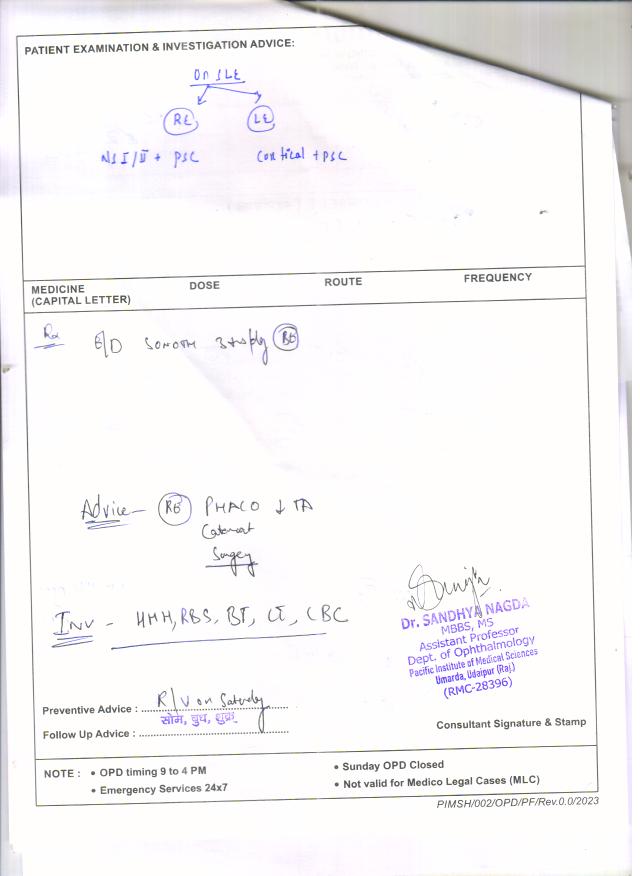 PATIENT EXAMINATION & INVESTIGATION ADVICE:
On SLE
RE LE
NS I/II + PSC Cortical + PSC
MEDICINE (CAPITAL LETTER) DOSE ROUTE FREQUENCY
Rx
E/D 3 BE
Advice - RE PHACO ↓ TA
Cataract
Surgery
INV - HHH, RBS, BT, CT, CBC
Dr. SANDHYA NAGDA
MBBS, MS
Assistant Professor
Dept. of Ophthalmology
Pacific Institute of Medical Sciences
Umarda, Udaipur (Raj.)
(RMC-28396)
Preventive Advice : R/V on Saturday
सोम, बुध, शुक्र
Follow Up Advice :
Consultant Signature & Stamp
NOTE : • OPD timing 9 to 4 PM • Sunday OPD Closed
• Emergency Services 24x7 • Not valid for Medico Legal Cases (MLC)
PIMSH/002/OPD/PF/Rev.0.0/2023